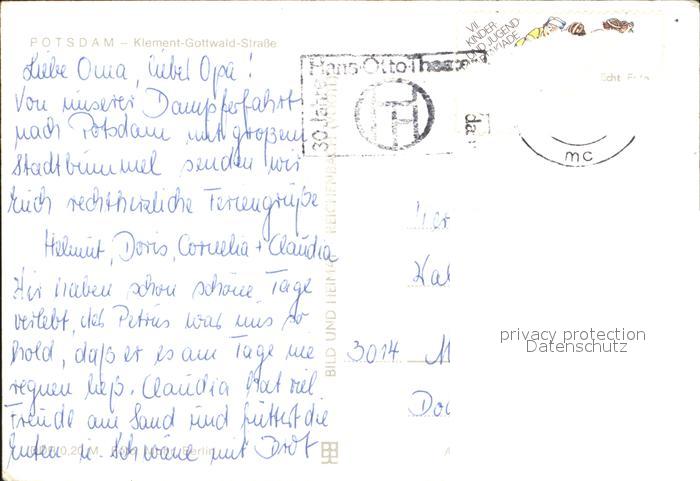 POTSDAM – Klement-Gottwald-Straße
Liebe Oma, lieber Opa!
Von unserer Dampferfahrt
nach Potsdam mit großem
Stadtbummel senden wir
Euch recht herzliche Feriengrüße
Helmut, Doris, Cornelia + Claudia
Wir haben schon schöne Tage
verlebt, da Petrus war uns so
hold, daß er es am Tage nie
regnen ließ. Claudia hat viel
Freude am Sand und füttert die
Enten u. Schwäne mit Brot
0,20 M Berlin
BILD UND HEIMAT REICHENBACH
VII.
KINDER
UND JUGEND-
Hans-Otto-Theater
30 Jahre
HOT
mc
3014 M
privacy protection
Datenschutz